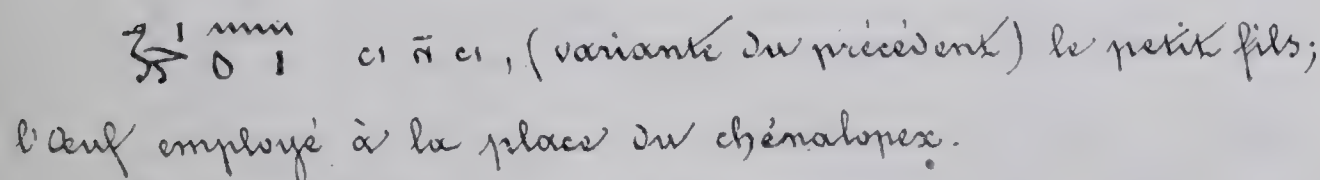 𓅭𓏤𓈖𓆇𓏤 ⲥⲓ ⲛ̄ ⲥⲓ, (variante du précédent) le petit fils;
l'Œuf employé à la place du chénalopex.